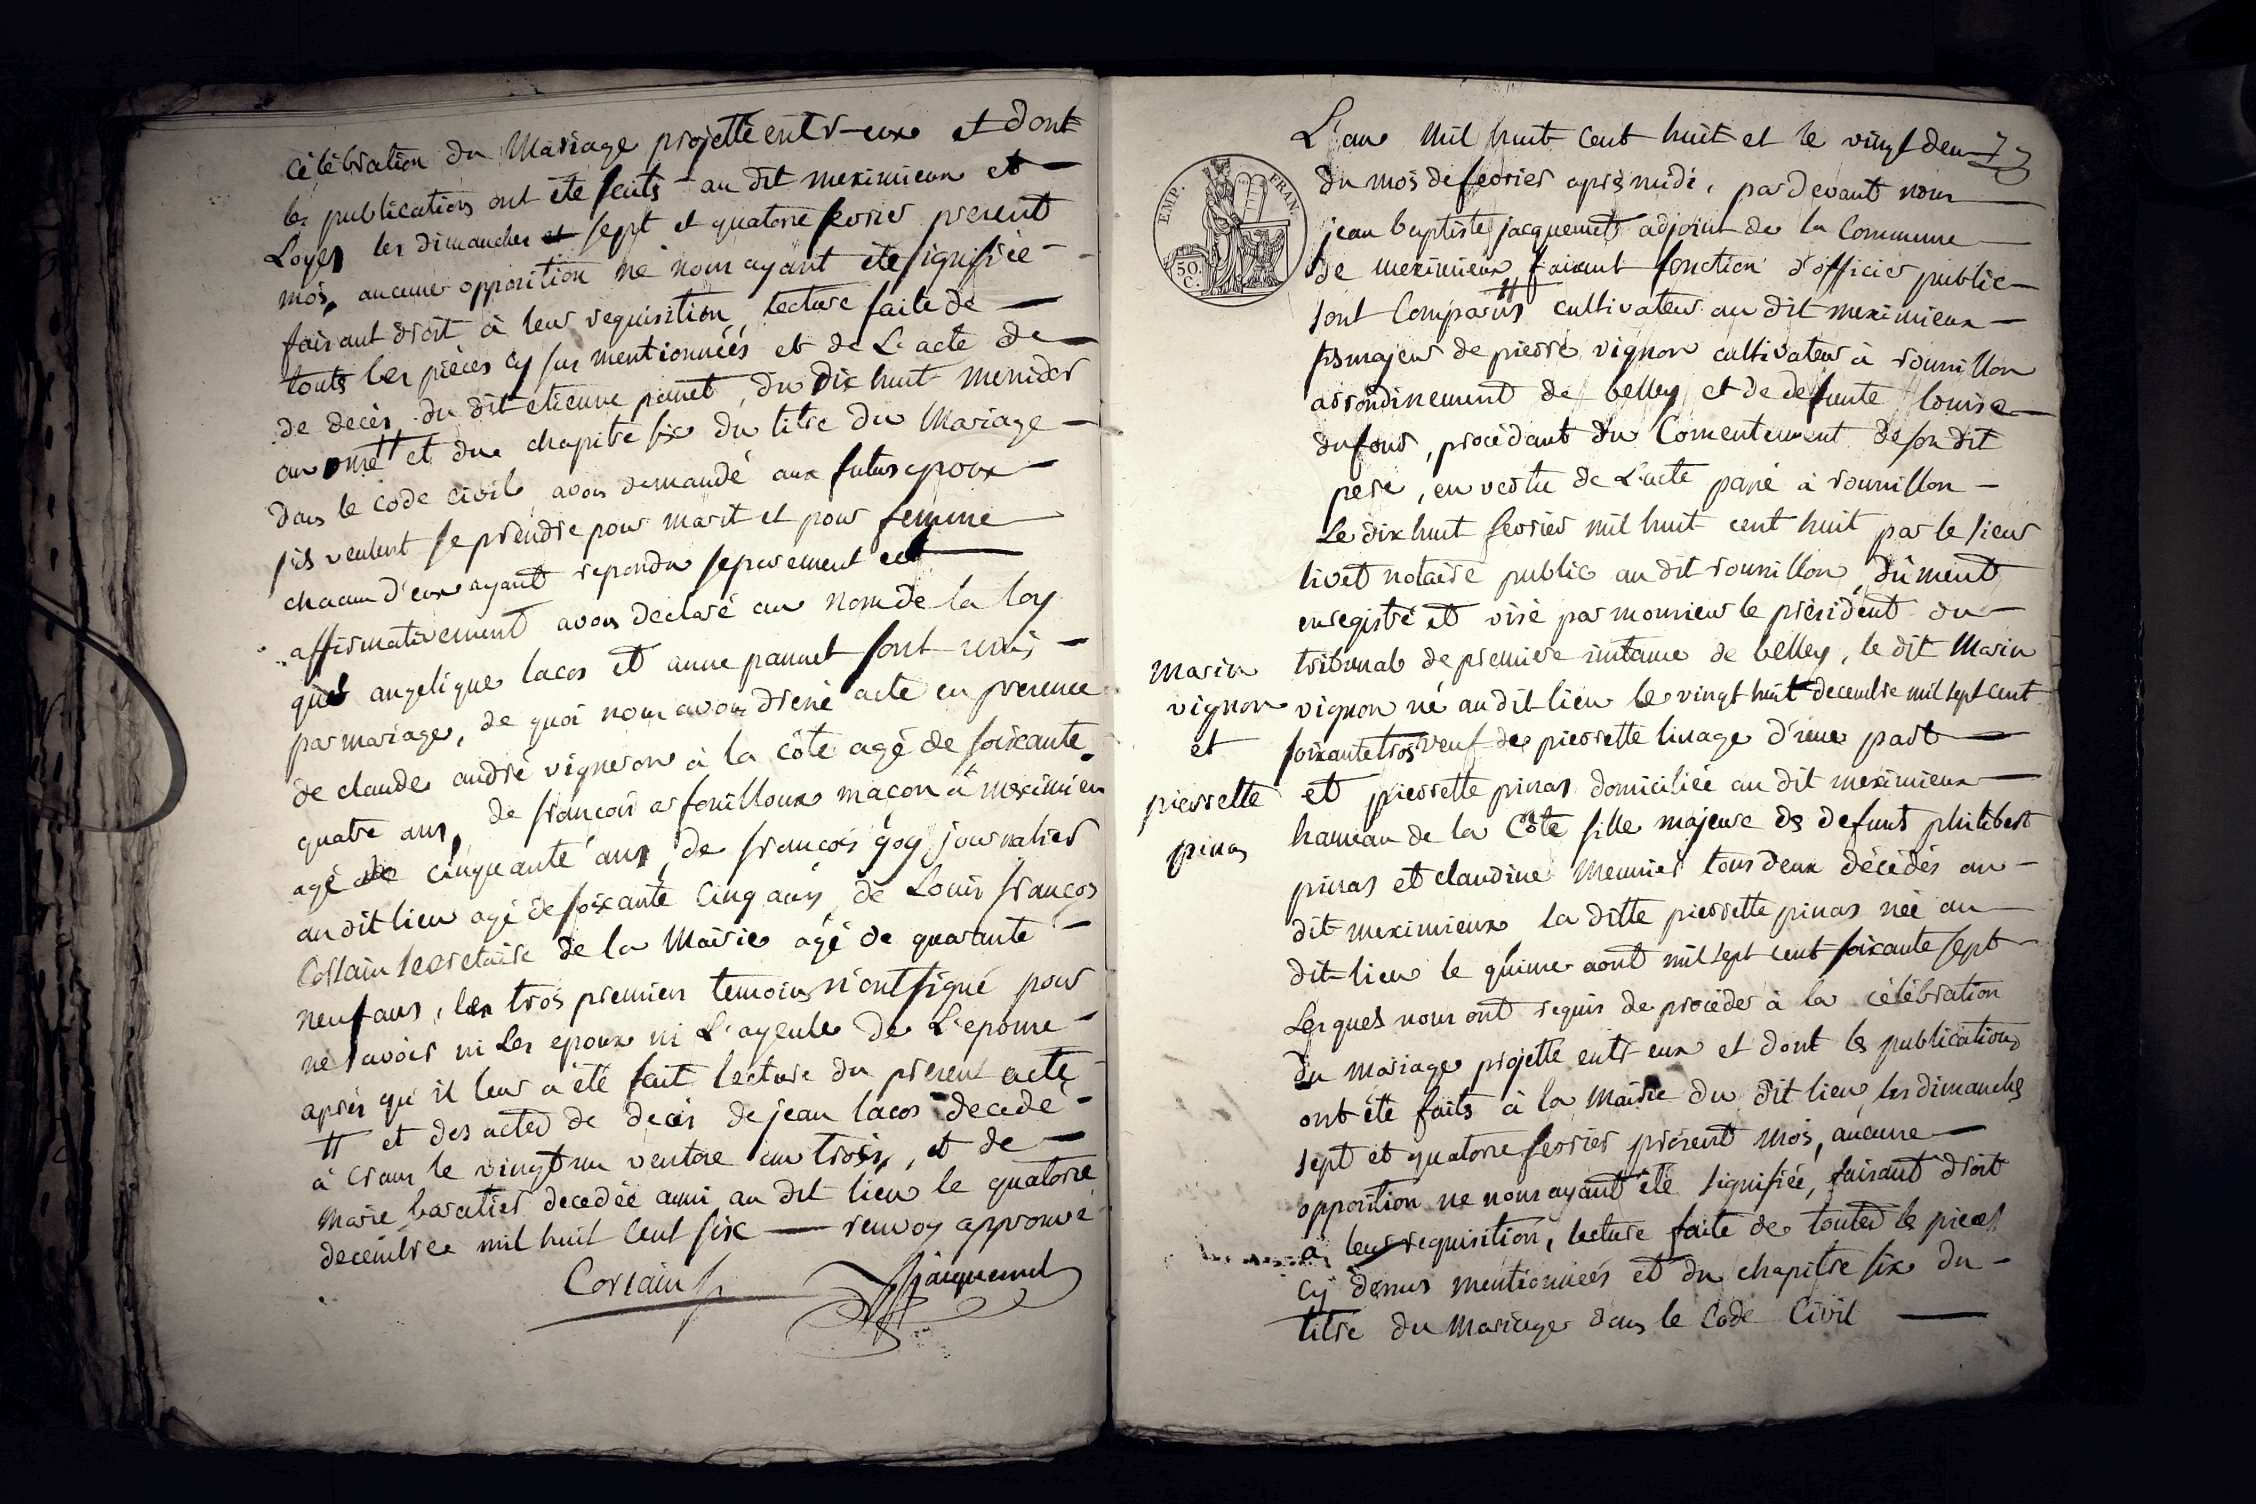 célébration du Mariage projetté entr-eux et dont
les publications ont été faits au dit meximieux et
Loyes les dimanches et sept et quatorze fevrier present
mois, aucune opposition ne nous ayant été signifiée
faisant droit à leur requisition lecture faite de
touts les pièces cy sus mentionnéés et de L'acte de
de decès du dit etienne pannet, du dix huit messidor
an onze et du chapitre six du titre du Mariage
dans le code civil avons demandé aux futurs epoux
s'ils veulent se prendre pour marit et pour femme
chacun d'eux ayant repondu separement et
affirmativement avons declaré au nom de la loy
que angelique lacos et anne pannet sont unis
par mariage, de quoi nous avons dressé acte en presence
de claude andré vigneron à la côte agé de soixante
quatre ans, de francois arfouilloux maçon à meximieu
agé de cinquante ans, de françois goy journalier
au dit lieu agé de soixante cinq ans, de Louis françois
Corsain secretaire de la Mairie agé de quarante
neuf ans, les trois premiers temoins n'ont signé pour
ne savoir ni les epoux ni L'ayeule de L'epouse
après qu'il leur a été fait lecture du present acte
et des actes de decès de jean lacos decedé
à crans le vingt un ventose an trois, et de
Marie baratier decedée aussi au dit lieu le quatorze
decembre mil huit cent six renvoy approuvé
Corsain Jacquemet
73
L'an Mil huit cent huit et le vingt deux
du mois de fevrier après midi, par devant nous
EMP. FRAN.
50. C.
jean baptiste jacquemet adjoint de la Commune
de meximieux faisant fonction d'officier public
sont Comparus cultivateur au dit meximieux
fils majeur de pierre vignon cultivateur à roussillon
arrondinement de belley et de defunte louise
dufour, procédant du Consentement de son dit
pere, en vertu de L'acte passé à roussillon
Le dix huit fevrier mil huit cent huit par le sieur
livet notaire public au dit roussillon, dûment
enregistré et visé par monsieur le président du
tribunal de premiere instance de belley, le dit Marin
vignon né au dit lieu le vingt huit decembre mil sept cent
soixante trois veuf de pierrette linage d'une part
et pierrette pinas domiciliée au dit meximieux
hameau de la Côte fille majeure de defunts philibert
pinas et claudine Meunier tous deux décédés au
dit meximieux la ditte pierrette pinas née au
dit lieu le quinze aout mil sept cent soixante sept
Lesquels nous ont requis de procéder à la célébration
du mariage projetté entr eux et dont les publications
ont été faits à la Mairie du dit lieu les dimanches
sept et quatorze fevrier présent mois, aucune
opposition ne nous ayant été signifiée, faisant droit
à leur requisition, lecture faite de toutes les pieces
cy dessus mentionnéés et du chapitre six du
titre du Mariage dans le Code Civil
Marin
vignon
et
pierrette
pinas